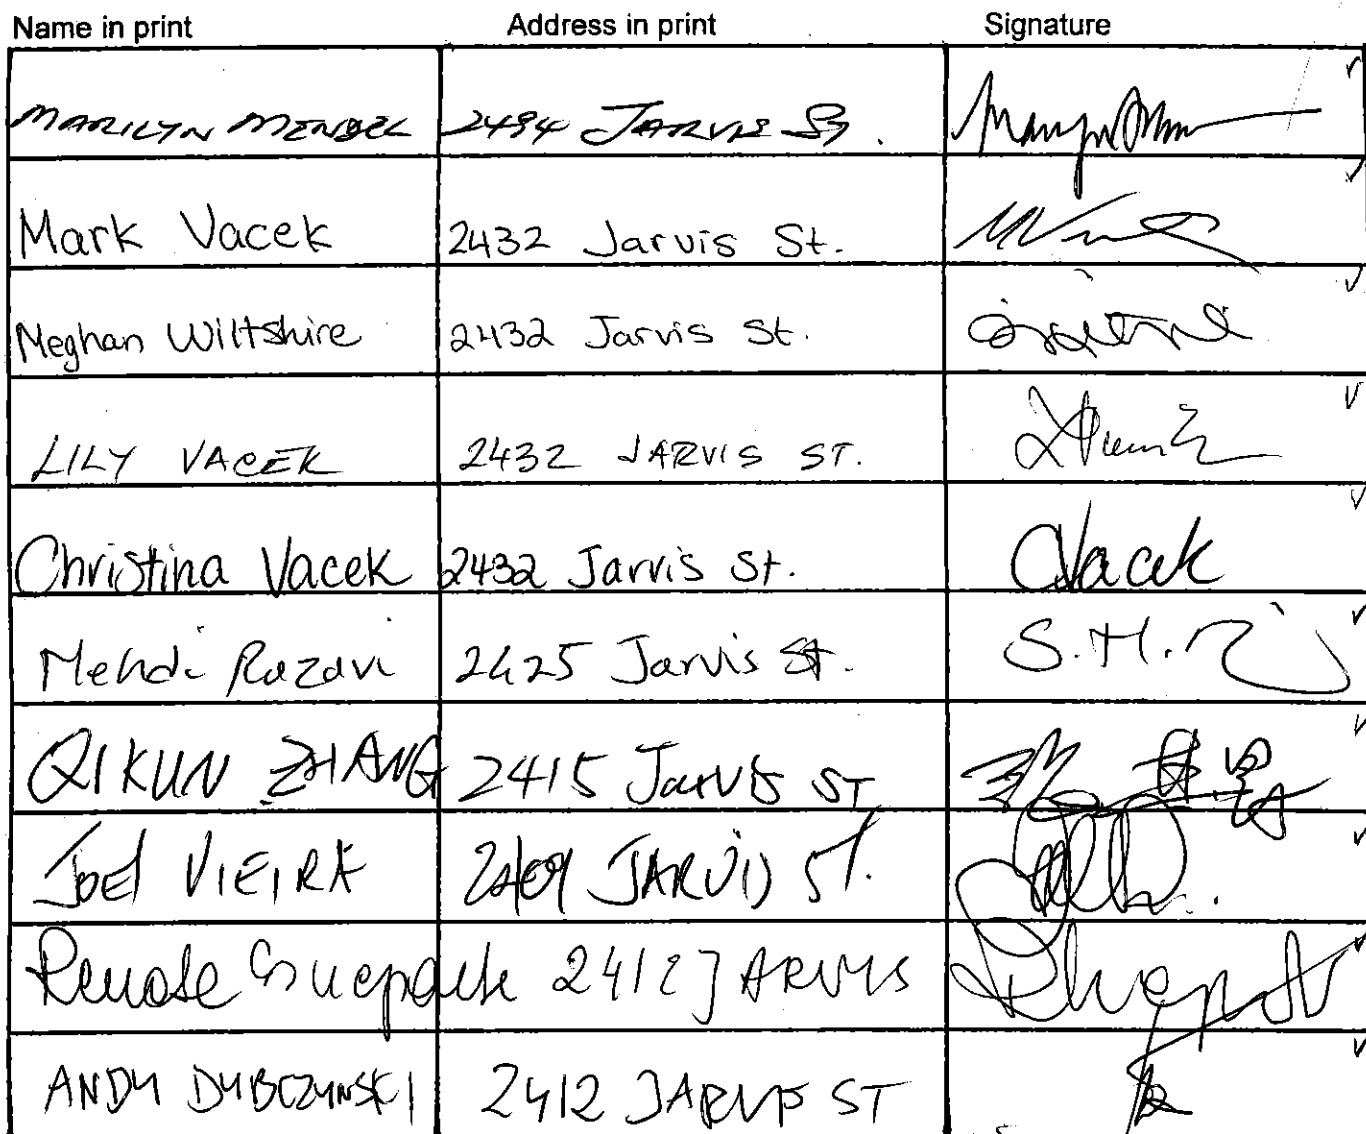 Name in print Address in print Signature
MARILYN MENDEL 2494 JARVIS St.
Mark Vacek 2432 Jarvis St.
Meghan Wiltshire 2432 Jarvis St.
LILY VACEK 2432 JARVIS ST.
Christina Vacek 2432 Jarvis St. CVacek
Mehdi Razavi 2425 Jarvis St. S.H.
QIKUN ZHANG 2415 Jarvis ST
JOEL VIEIRA JARVIS ST.
2412 JARVIS
ANDY DYBCZYNSKI 2412 JARVIS ST